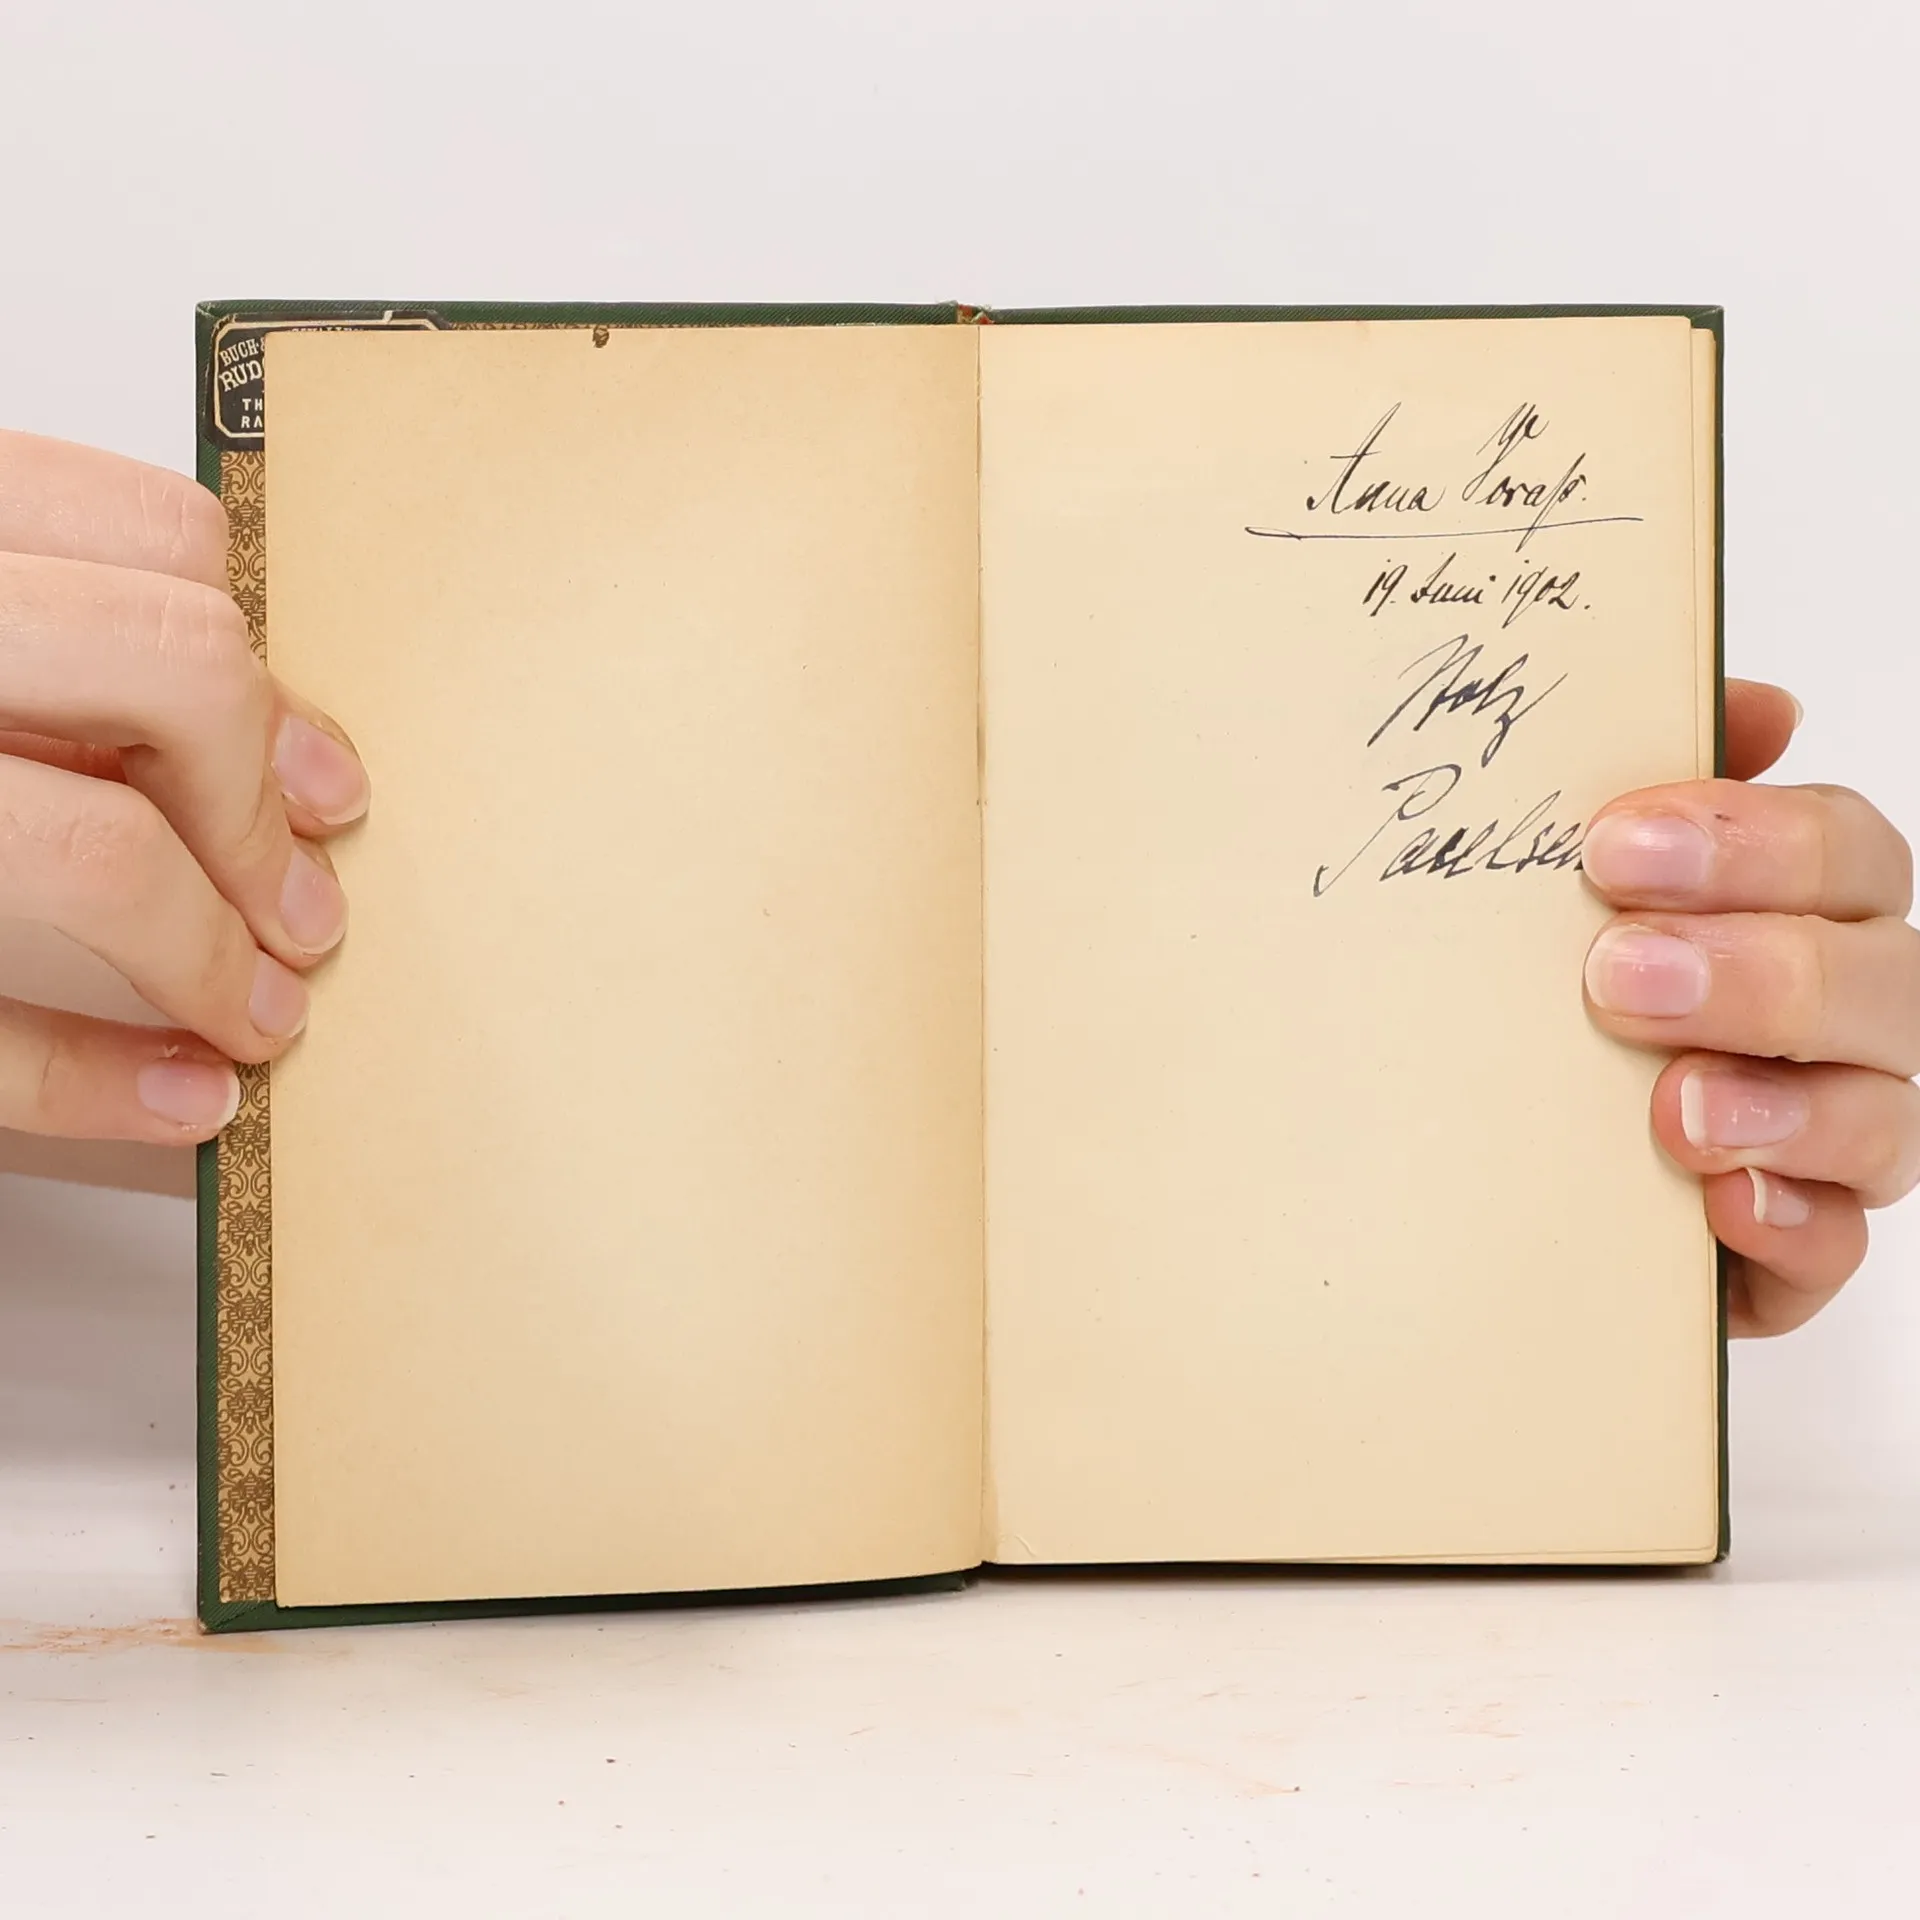 BUCH-&
RUD
TH
RA
Anna
19. Juni 1902.
Holz
Paulsen